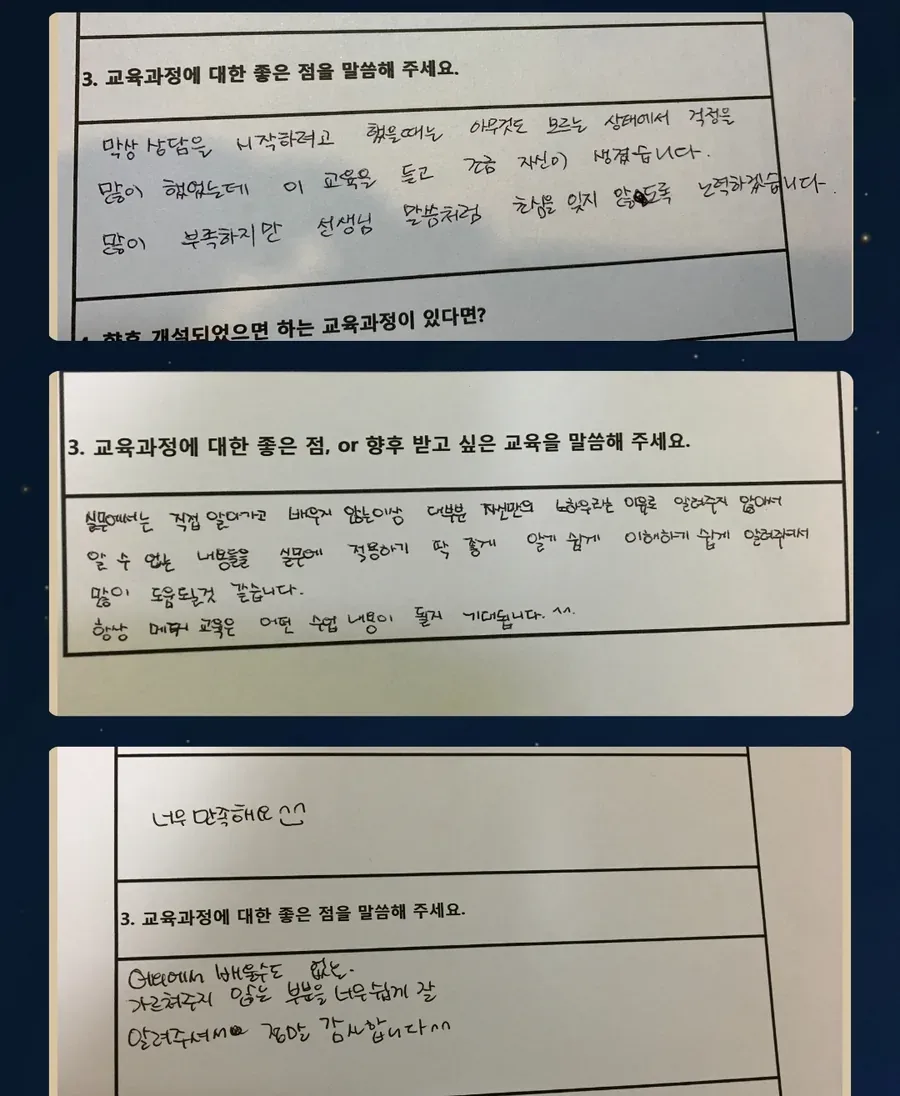 3. 교육과정에 대한 좋은 점을 말씀해 주세요.
막상 상담을 시작하려고 했을때는 아무것도 모르는 상태에서 걱정을
많이 했었는데 이 교육을 듣고 조금 자신이 생겼습니다.
많이 부족하지만 선생님 말씀처럼 초심을 잊지 않도록 노력하겠습니다.
4. 향후 개설되었으면 하는 교육과정이 있다면?
3. 교육과정에 대한 좋은 점, or 향후 받고 싶은 교육을 말씀해 주세요.
실무에서는 직접 알아가고 배우지 않는이상 대부분 자신만의 노하우라는 이유로 알려주지 않아서
알 수 없는 내용들을 실무에 적용하기 딱 좋게 알기 쉽게 이해하기 쉽게 알려주셔서
많이 도움될것 같습니다.
항상 교육은 어떤 수업 내용이 될지 기대됩니다.^^.
너무 만족해요^^
3. 교육과정에 대한 좋은 점을 말씀해 주세요.
어디에서 배울수도 없는.
가르쳐주지 않는 부분을 너무쉽게 잘
알려주셔서 정말 감사합니다^^